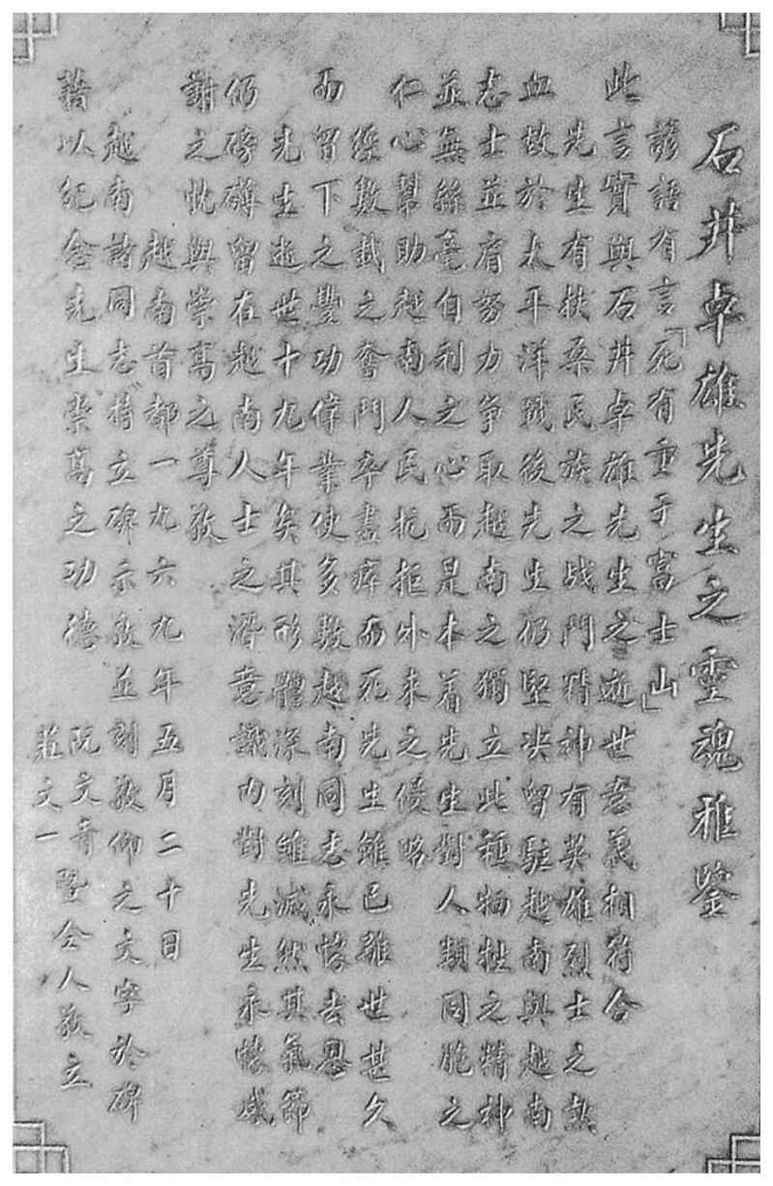 石井卓雄先生之靈魂雅鑒
諺語有言「死有重于富士山」
此言實與石井卓雄先生之逝世意義相符合
先生有扶桑民族之战鬥精神有英雄烈士之熱
血故於太平洋戰後先生仍堅决留駐越南與越南
志士並肩努力爭取越南之獨立此種犧牲之精神
並無絲毫自利之心而是本着先生對人類同胞之
仁心幫助越南人民抗拒外来之侵略
經數載之奮鬥卒盡瘁而死先生雖已離世甚久
而留下之豐功偉業使多数越南同志永懷去恩
先生逝世十九年矣其形體深刻雖滅然其氣節
仍磅礡留在越南人士之潛意識内對先生永懷感
謝之忱與崇高之尊敬
越南首都一九六九年五月二十日
越南諸同志特立碑示敬並刻敬仰之文字於碑
藉以紀念先生崇高之功德
阮文 暨仝人敬立
莊文一